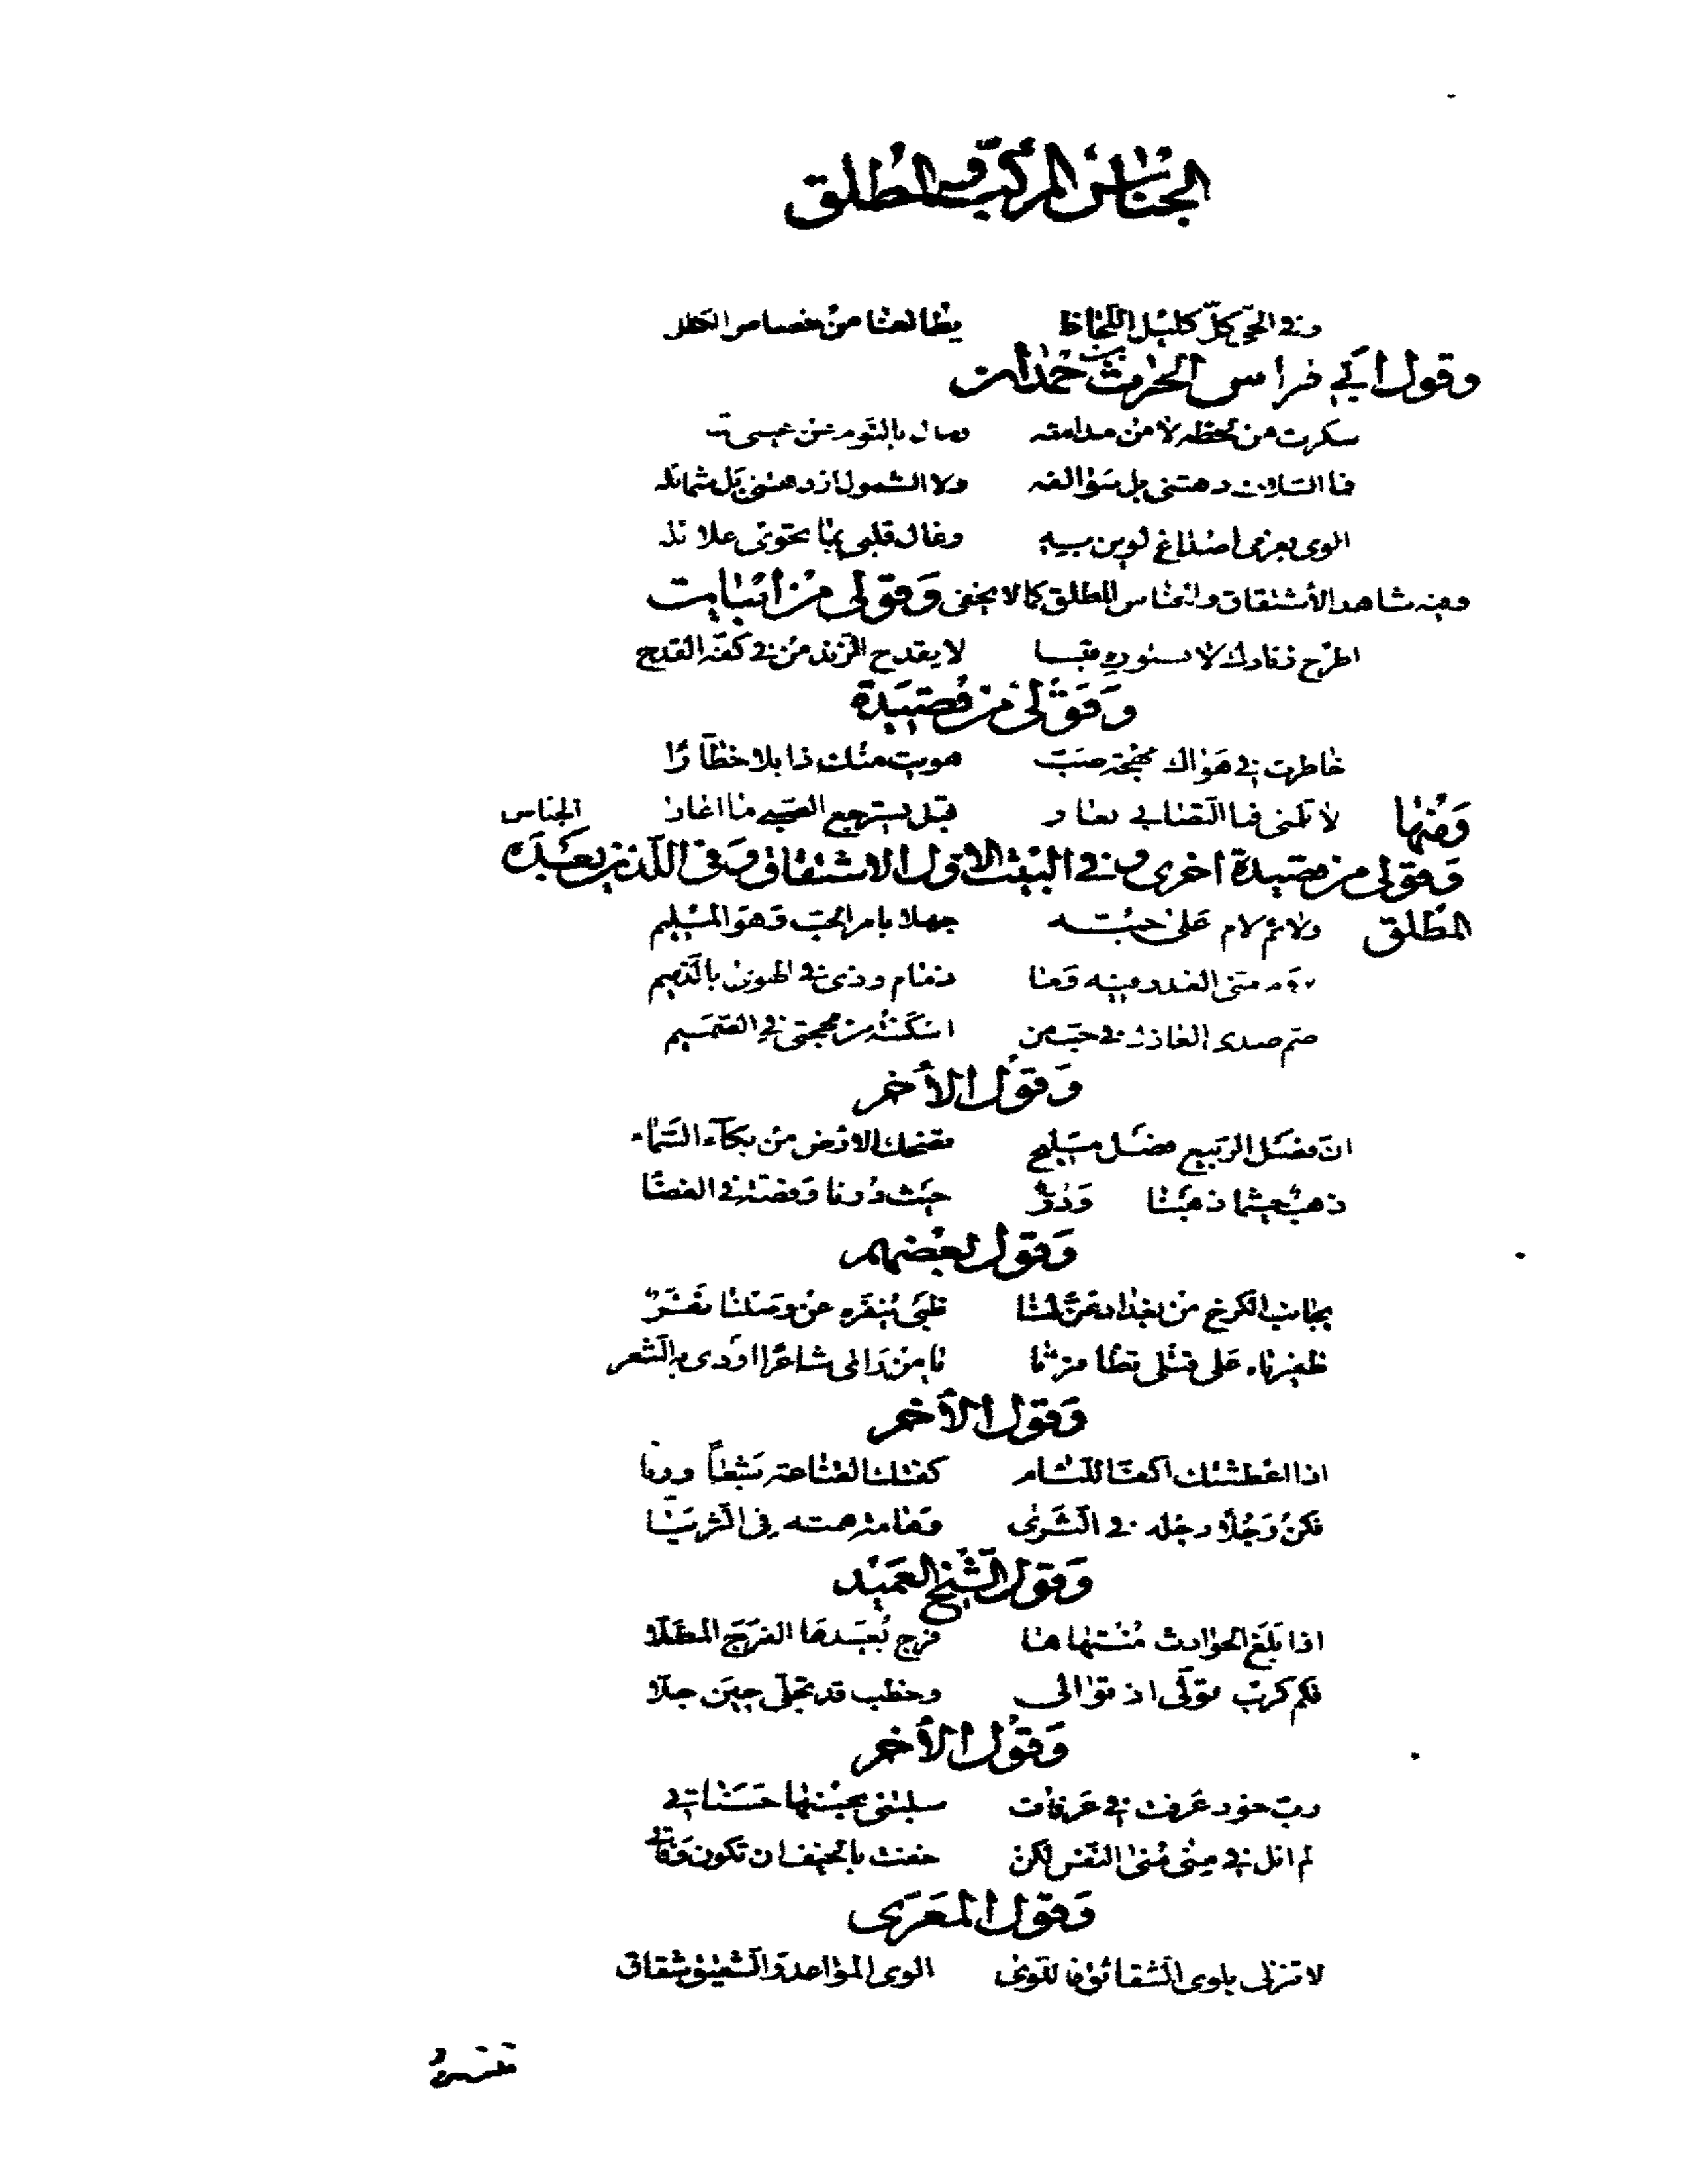 الجناس المركب والمطلق
وفي الحي كل كليل اللحاظ يطالعنا من خصاص الكلل
وقول أبي فراس الحارث بن حمدان
سكرت من لحظه لا من مدامته ومال بالنوم عن عيني
فما السلاف دهتني بل سوالفه ولا الشمول ازدهتني بل شمائله
الوى بعزمي اصداغ لوين وغال قلبي بما تحوي غلائله
وفيه شاهد الأشتقاق والجناس المطلق كما لا يخفى وقولي من أبيات
اطرح فؤادك لا قبسا لا يقدح الزند من في كفه القدح
وقولي من قصيدة
خاطرت في هواك مهجة صب هويت منك ذا بلا خطارا
ومنها لا تلمني فما التصابي بعار قبل يسترجع الصبي ما اعارا الجناس
وقولي من قصيدة اخرى وفي البيت الاول الاشتقاق وفي اللذين بعده
المطلق ولائم لام على حبه جهلا بامر الحب وهو المليم
متى الغدر فيه وما ذمام ودي في الهوى بالذميم
صم صدى العاذل في حب من اسكنته من مهجتي في الصميم
وقول الأخر
ان فصل الربيع فصل مليح تضحك الارض من بكآء السماء
ذهب حيثما ذهبنا ودر حيث درنا وفضة في الفضا
وقول بعضهم
بجانب الكرخ من بغداد عن لنا ظبي ينفره عن وصلنا نفر
ظفيرتاه على قتلي تظافرتا يا من رأى شاعرا اودى به الشعر
وقول الأخر
اذا اعطشتك اكف اللئام كفتك القناعة شبعا وريا
فكن رجلا رجله في الثرى وهامة همته في الثريا
وقول الشيخ العميد
اذا بلغ الحوادث منتهاها فرج بعيدها الفرج المطلا
فكم كرب تولى اذ توالى وخطب قد تجلى حين جلا
وقول الأخر
رب خود عرفت في عرفات سلبتني بحسنها حسناتي
لم انل في منى منى النفس لكن خفت بالخيف ان تكون وفاتي
وقول المعري
لا تنزلي بلوى الشقائق فاللوى الوى المواعد والشقيق شقاق